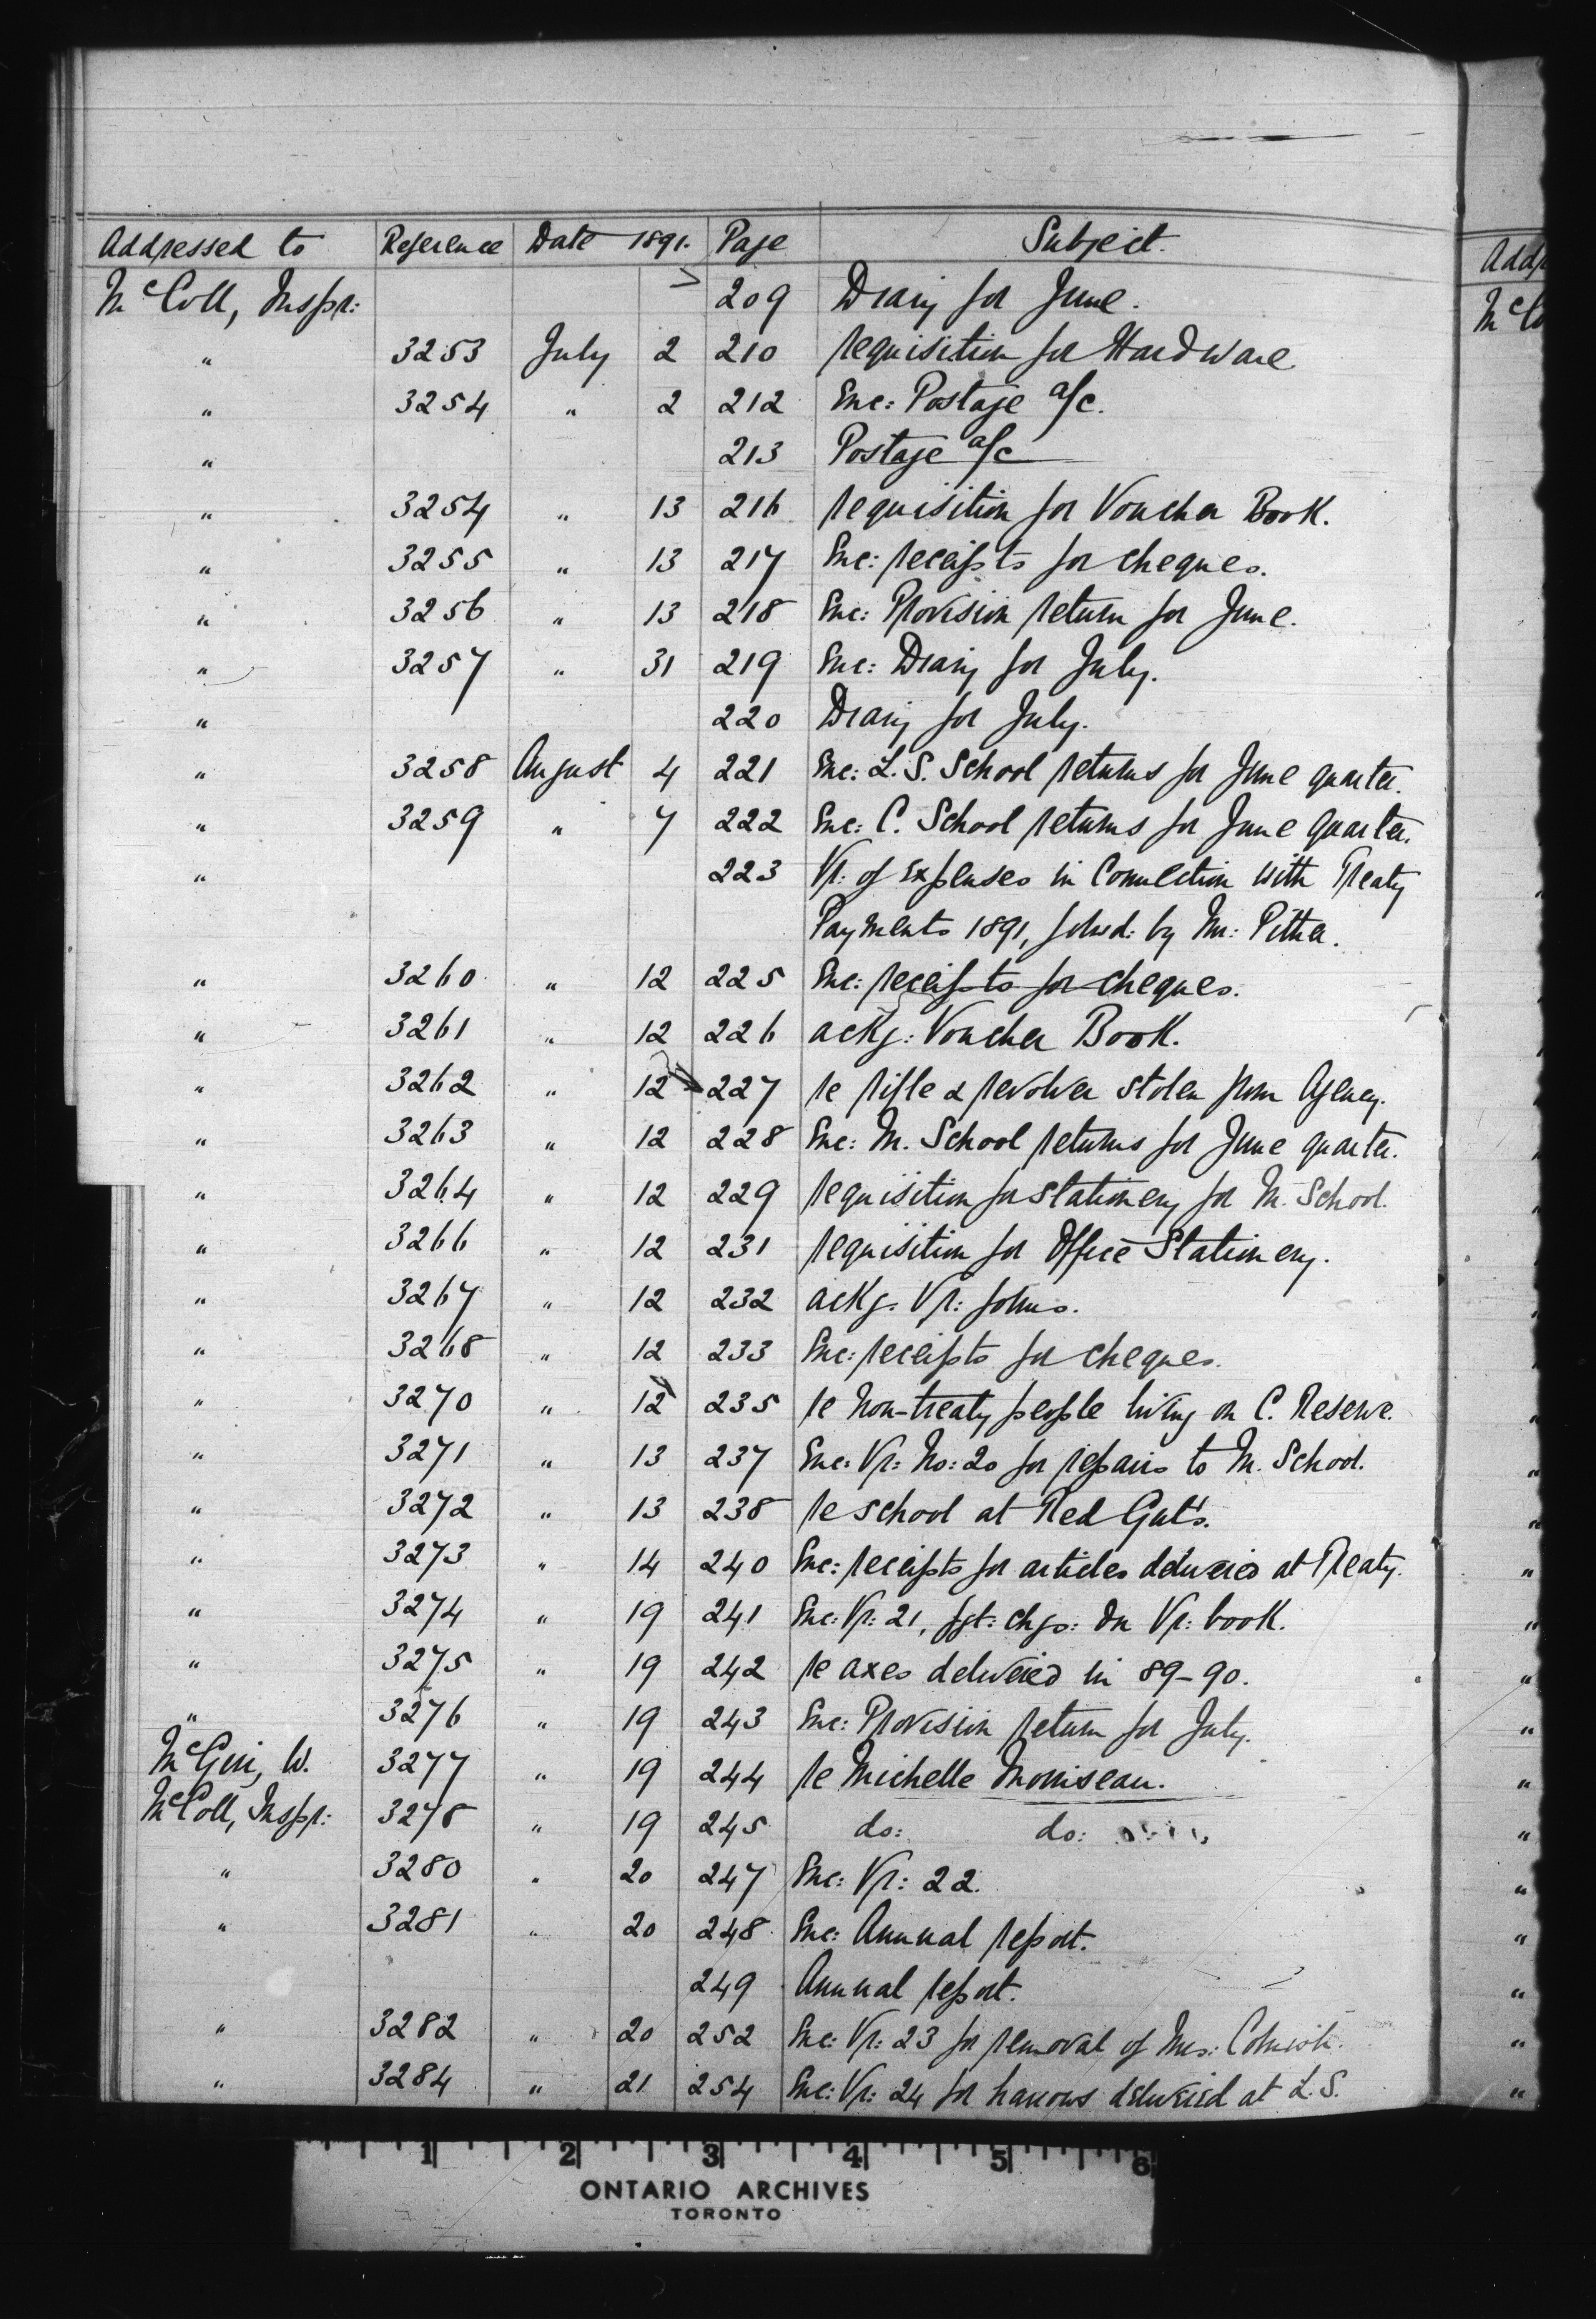 Addressed to Reference Date 1891. Page Subject.
McColl, Inspr: 209 Diary for June.
" 3253 July 2 210 requisition for Hardware
" 3254 " 2 212 Enc: Postage a/c.
" 213 Postage a/c
" 3254 " 13 216 requisition for Voucher Book.
" 3255 " 13 217 Enc: receipts for cheques.
" 3256 " 13 218 Enc: Provision return for June.
" 3257 " 31 219 Enc: Diary for July.
" 220 Diary for July.
" 3258 August 4 221 Enc: L.S. School returns for June quarter.
" 3259 " 7 222 Enc: C. School returns for June quarter.
" 223 Vr: of expenses in Connection with Treaty
Payments 1891, by Mr: Pither.
" 3260 " 12 225 Enc: receipts for cheques.
" 3261 " 12 226 ackg: Voucher Book.
" 3262 " 12 227 re rifle & revolver stolen from Agency.
" 3263 " 12 228 Enc: M. School returns for June quarter.
" 3264 " 12 229 requisition for stationery for M. School.
" 3266 " 12 231 requisition for Office Stationery.
" 3267 " 12 232 ackg. Vr: forms.
" 3268 " 12 233 Enc: receipts for cheques.
" 3270 " 12 235 re non-treaty people living on C. Reserve.
" 3271 " 13 237 Enc: Vr: No: 20 for repairs to M. School.
" 3272 " 13 238 re school at Red Gut's.
" 3273 " 14 240 Enc: receipts for articles delivered at Treaty.
" 3274 " 19 241 Enc: Vr: 21, fgt: chgs: on Vr: book.
" 3275 " 19 242 re axes delivered in 89-90.
" 3276 " 19 243 Enc: Provision return for July.
W. 3277 " 19 244 re Michelle Morriseau.
McColl, Inspr: 3278 " 19 245 do: do:
" 3280 " 20 247 Enc: Vr: 22.
" 3281 " 20 248 Enc: Annual report.
249 Annual report.
" 3282 " 20 252 Enc: Vr: 23 for removal of Mrs: Cornish.
" 3284 " 21 254 Enc: Vr: 24 for harrows delivered at L.S.
1 2 3 4 5 6
ONTARIO ARCHIVES
TORONTO